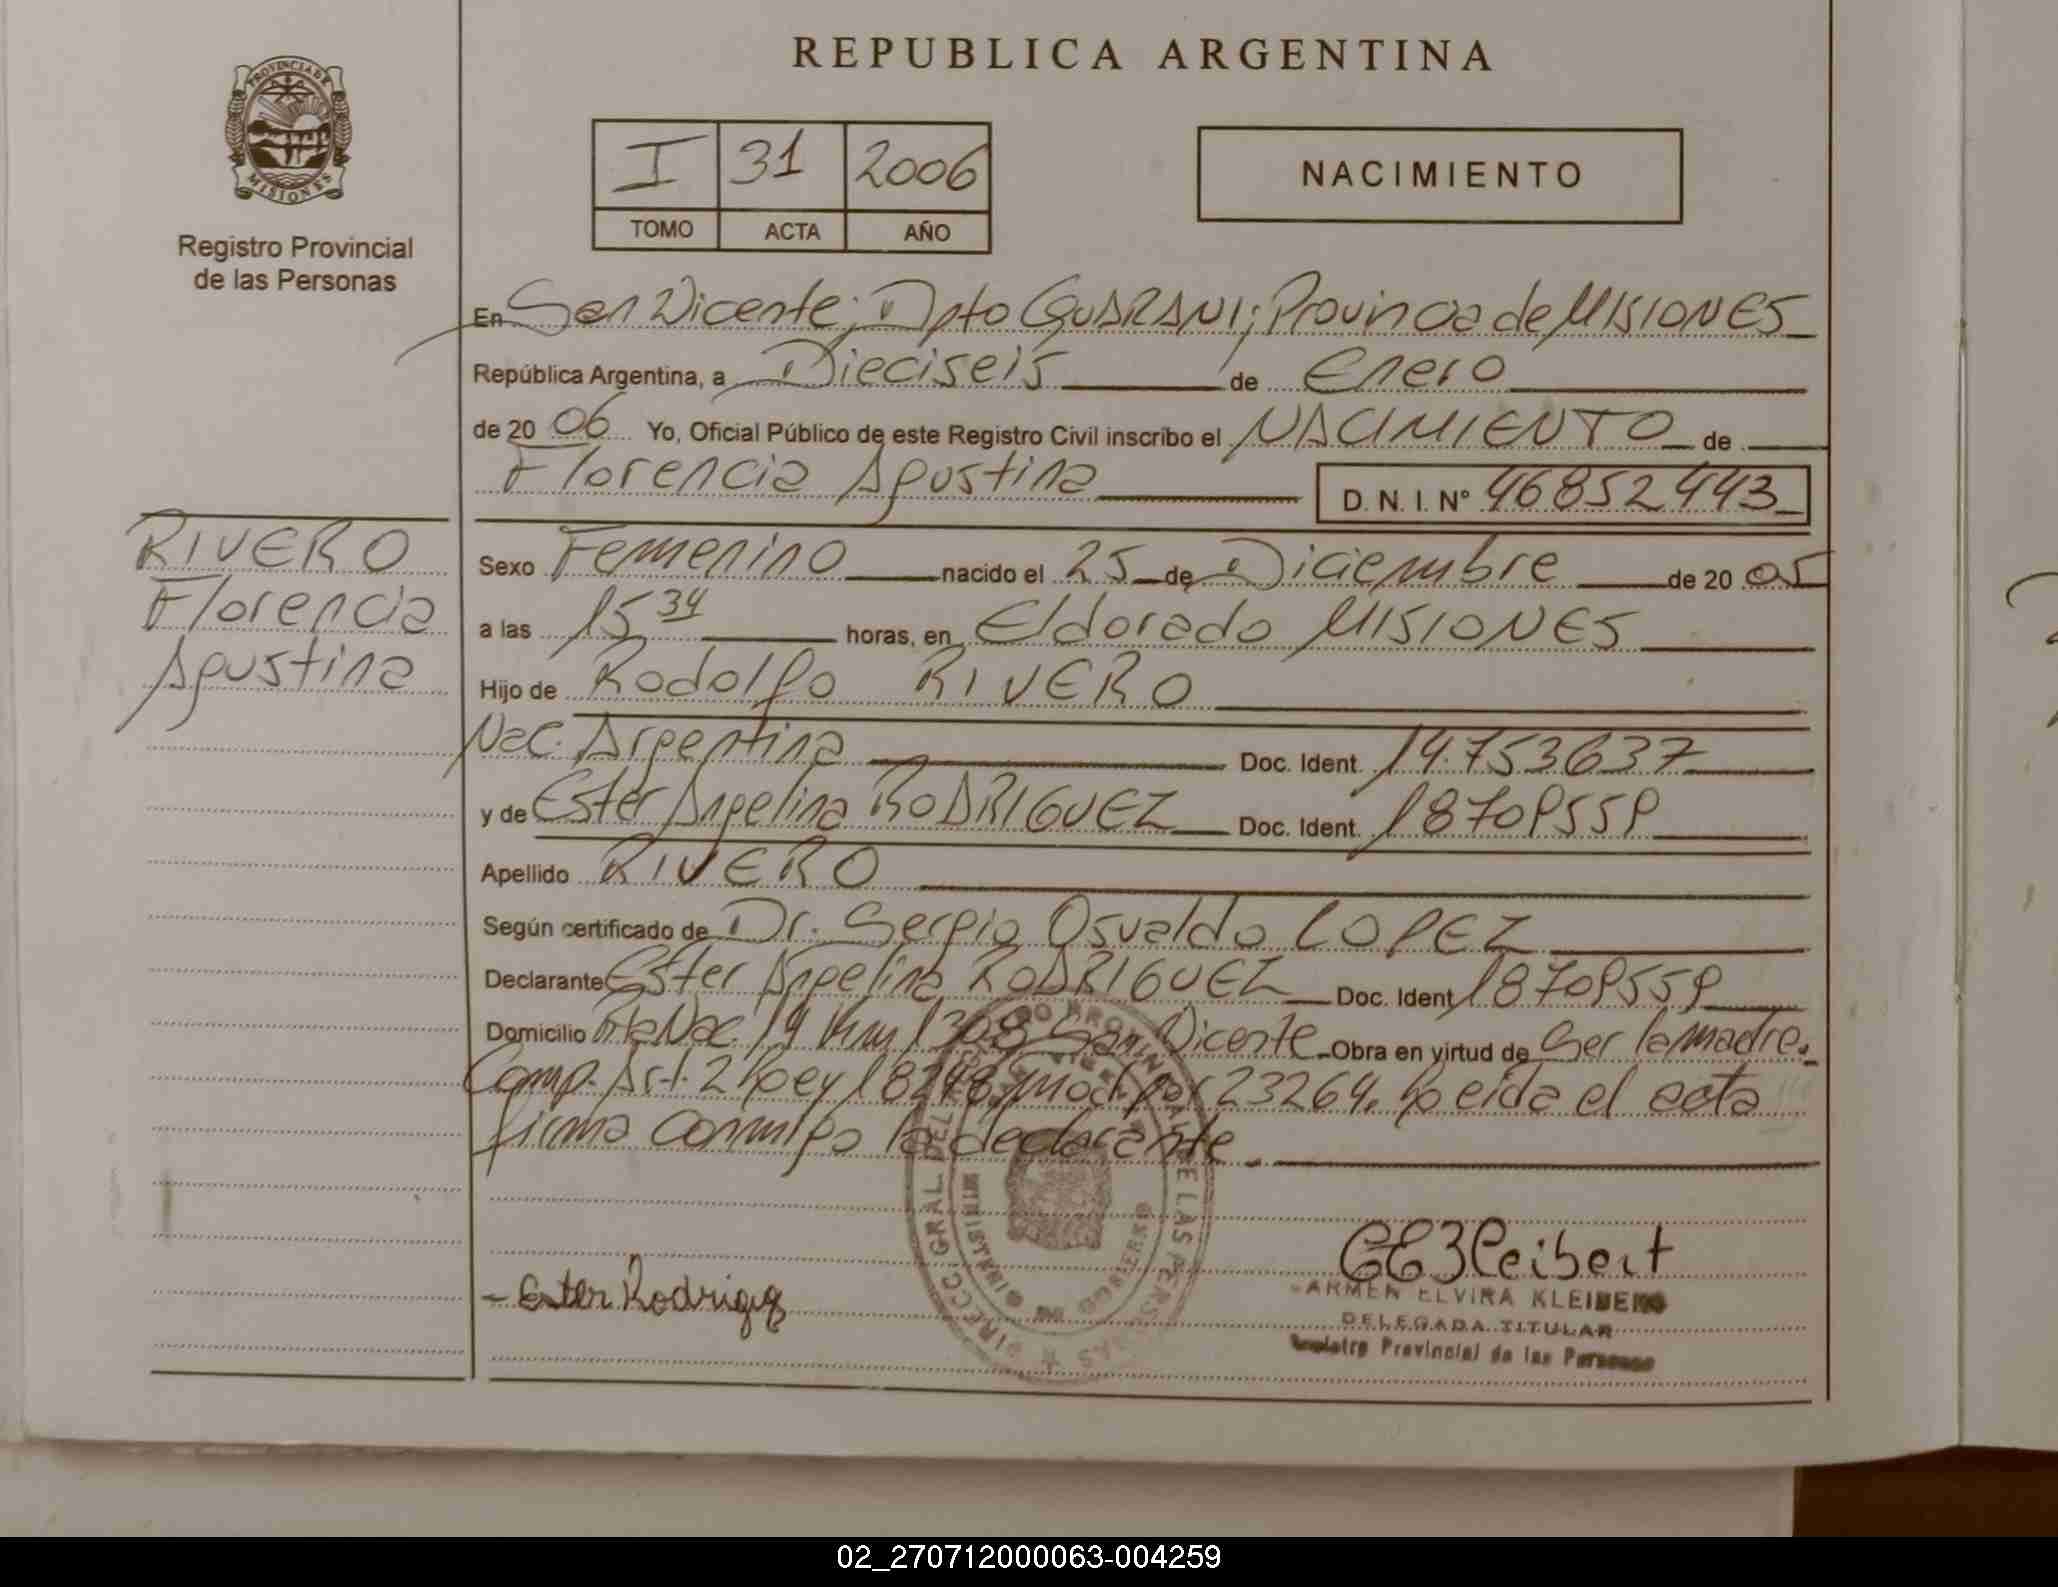 REPUBLICA ARGENTINA
PROVINCIA DE
MISIONES
Registro Provincial
de las Personas
I 31 2006
TOMO ACTA AÑO
NACIMIENTO
En San Vicente; Dpto GUARANI; Provincia de MISIONES
República Argentina, a Dieciseis de Enero
de 20 06 Yo, Oficial Público de este Registro Civil inscribo el NACIMIENTO de
Florencia Agustina D. N. I. Nº 46852443
RIVERO
Florencia
Agustina
Sexo Femenino nacido el 25 de Diciembre de 20 05
a las 15 34 horas, en Eldorado MISIONES
Hijo de Rodolfo RIVERO
Nac. Argentina Doc. Ident. 14.753637
y de Ester Angelina RODRIGUEZ Doc. Ident. 18709559
Apellido RIVERO
Según certificado de Dr. Sergio Osvaldo LOPEZ
Declarante Ester Angelina RODRIGUEZ Doc. Ident 18709559
Domicilio Rta Nac. 14 Km 1308 San Vicente Obra en virtud de Ser la madre.
Comp. Art. 2 Ley 18248 mod por 23264. Leida el acta
firma conmigo la declarante.
DIRECC. GRAL. DEL REGISTRO PROVINCIAL DE LAS PERSONAS
MINISTERIO DE GOBIERNO
Ester Rodrigez
CEKleibert
CARMEN ELVIRA KLEIBERT
DELEGADA TITULAR
Registro Provincial de las Personas
02_270712000063-004259